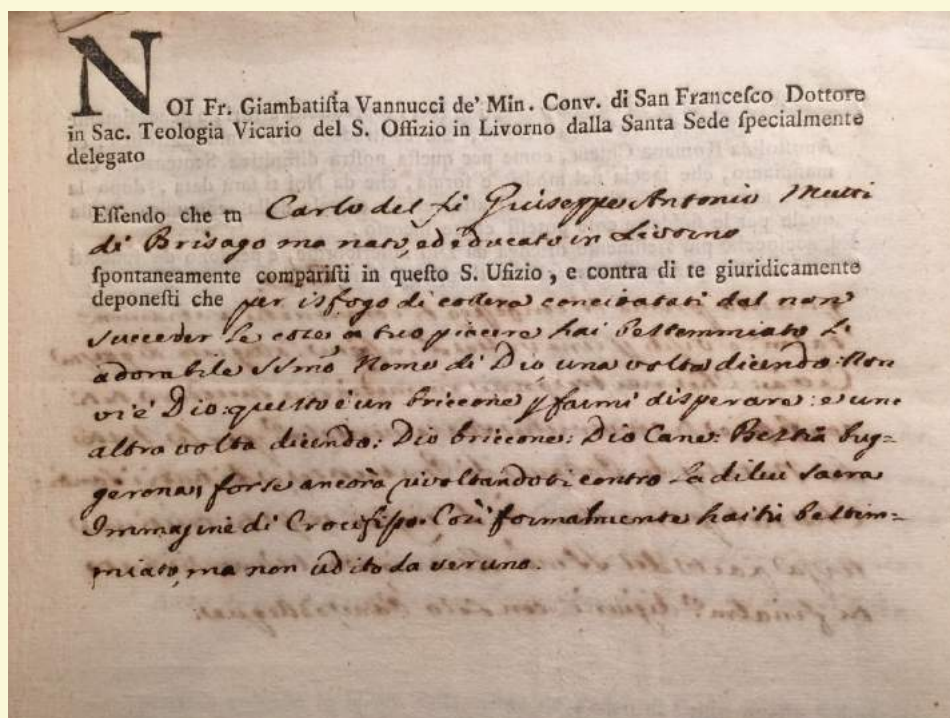 NOI Fr. Giambatiſta Vannucci de' Min. Conv. di San Franceſco Dottore
in Sac. Teologia Vicario del S. Offizio in Livorno dalla Santa Sede ſpecialmente
delegato
Eſſendo che tu Carlo del fù Giuseppe Antonio
di Brisago ma nato, ed educato in Livorno
ſpontaneamente compariſti in queſto S. Ufizio, e contra di te giuridicamente
deponeſti che per isfogo di collera concitatati dal non
succeder le cose a tuo piacere hai bestemmiato
adorabile Nome di Dio una volta dicendo: Non
vi è Dio: questo è un briccone farmi disperare: e une
altra volta dicendo: Dio briccone: Dio Cane: Bestia bug=
gerona, forse ancora rivoltandoti contro la di lui sacra
Immagine di Crocifisso. Così formalmente hai tu bestem=
miato, ma non udito da veruno.